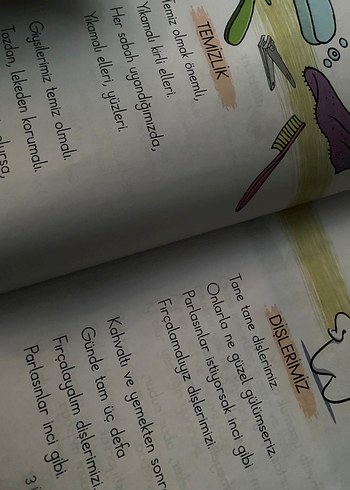 TEMİZLİK
Temiz olmak önemli,
Yıkamalı kirli elleri.
Her sabah uyandığımızda,
Yıkamalı elleri, yüzleri.
Giysilerimiz temiz olmalı.
Tozdan, lekeden korumalı.
DİŞLERİMİZ
Tane tane dişlerimiz.
Onlarla ne güzel gülümseriz.
Parlasınlar istiyorsak inci gibi
Fırçalamalıyız dişlerimizi.
Kahvaltı ve yemekten
Günde tam üç defa
Fırçalayalım dişlerimizi.
Parlasınlar inci gibi.